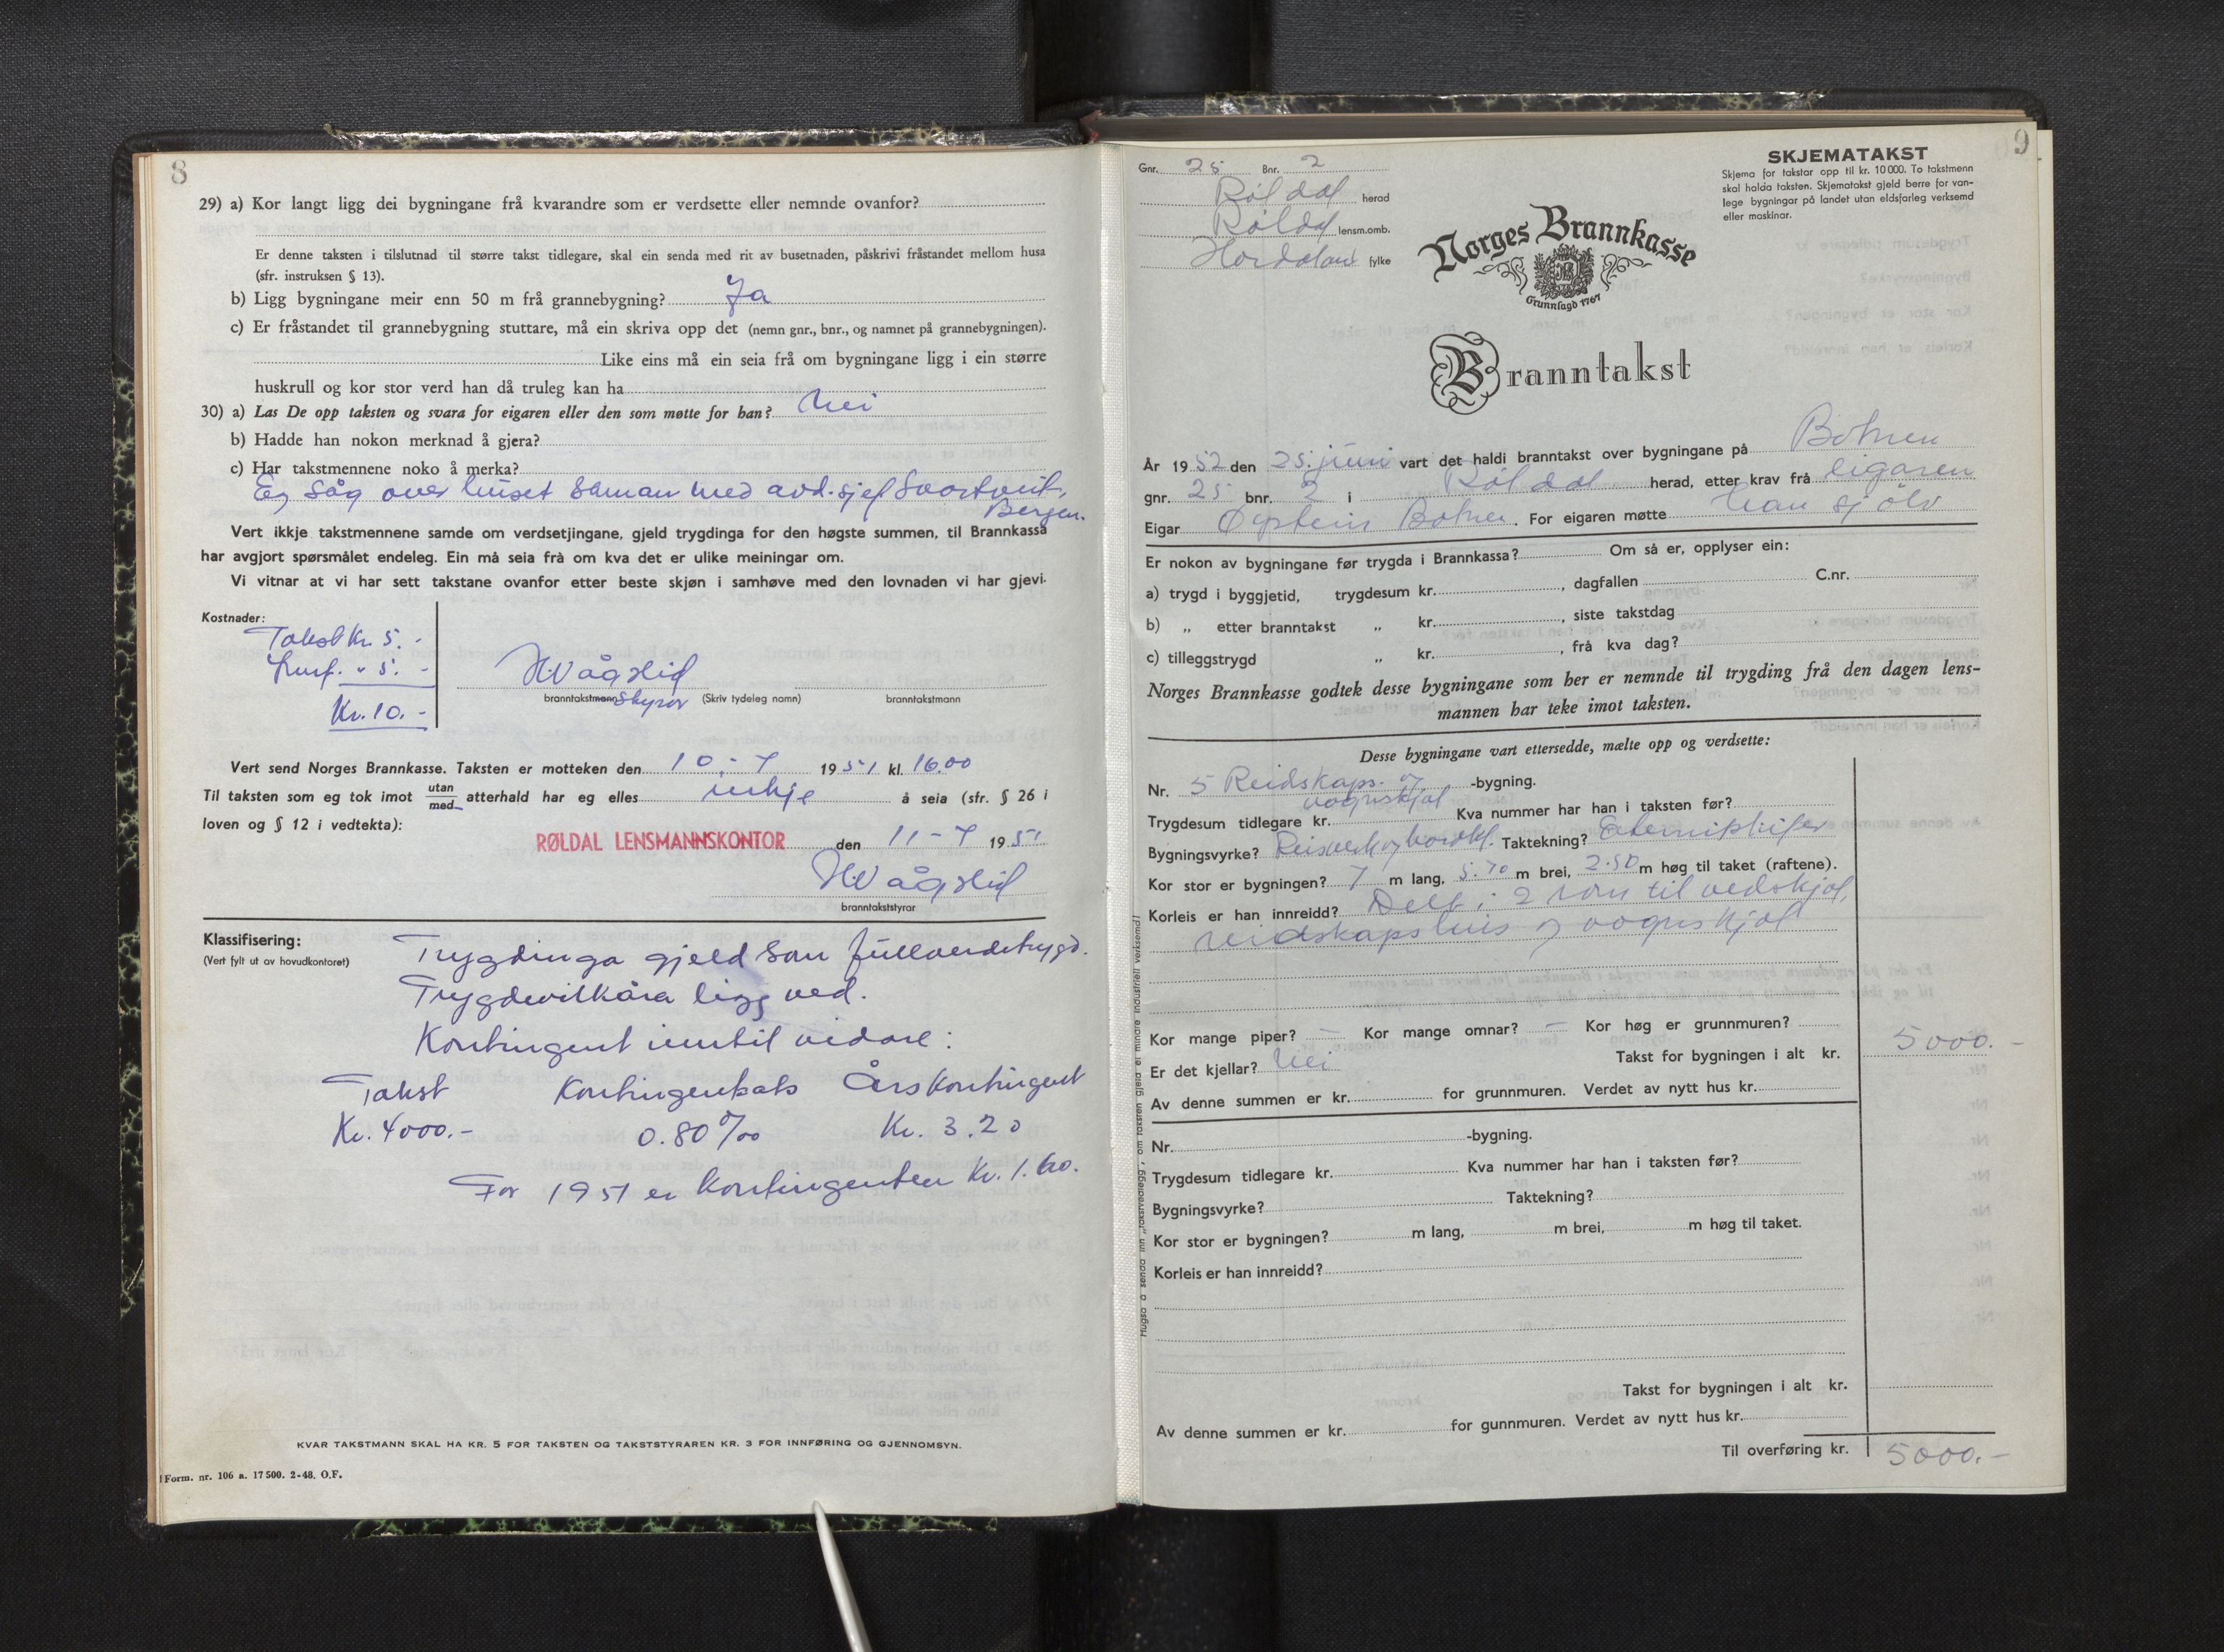 8
29) a) Kor langt ligg dei bygningane frå kvarandre som er verdsette eller nemnde ovanfor?
Er denne taksten i tilslutnad til større takst tidlegare, skal ein senda med rit av busetnaden, påskrivi fråstandet mellom husa
(sfr. instruksen § 13).
b) Ligg bygningane meir enn 50 m frå grannebygning? Ja
c) Er fråstandet til grannebygning stuttare, må ein skriva opp det (nemn gnr., bnr., og namnet på grannebygningen).
Like eins må ein seia frå om bygningane ligg i ein større
huskrull og kor stor verd han då truleg kan ha
30) a) Las De opp taksten og svara for eigaren eller den som møtte for han? Nei
b) Hadde han nokon merknad å gjera?
c) Har takstmennene noko å merka?
Eg såg over huset saman med avd.sjef Svortveit,
Bergen.
Vert ikkje takstmennene samde om verdsetjingane, gjeld trygdinga for den høgste summen, til Brannkassa
har avgjort spørsmålet endeleg. Ein må seia frå om kva det er ulike meiningar om.
Vi vitnar at vi har sett takstane ovanfor etter beste skjøn i samhøve med den lovnaden vi har gjevi.
Kostnader:
Takst kr. 5.-
Innf. " 5.-
Kr. 10.-
H Vågslid
branntakstmann styrar (Skriv tydeleg namn) branntakstmann
Vert send Norges Brannkasse. Taksten er motteken den 10.-7 1951 kl. 16.00
Til taksten som eg tok imot utan med atterhald har eg elles inkje å seia (sfr. § 26 i
loven og § 12 i vedtekta):
RØLDAL LENSMANNSKONTOR den 11-7 1951
H Vågslid
branntakststyrar
Klassifisering:
(Vert fylt ut av hovudkontoret)
Trygdinga gjeld som fullverdetrygd.
Trygdevilkåra ligg ved.
Kontingent inntil vidare:
Takst Kontingentsats Årskontingent
Kr. 4000.- 0.80 ‰ Kr. 3.20
For 1951 er kontingenten Kr. 1.60.
KVAR TAKSTMANN SKAL HA KR. 5 FOR TAKSTEN OG TAKSTSTYRAREN KR. 3 FOR INNFØRING OG GJENNOMSYN.
Form. nr. 106 a. 17500. 2-48. O.F.
9
Gnr. 25 Bnr. 2
Røldal herad
Røldal lensm.omb.
Hordaland fylke
SKJEMATAKST
Skjema for takstar opp til kr. 10 000. To takstmenn
skal halda taksten. Skjematakst gjeld berre for van-
lege bygningar på landet utan eldsfarleg verksemd
eller maskinar.
Norges Brannkasse
Grunnlagd 1767
Branntakst
År 1952 den 25. juni vart det haldi branntakst over bygningane på Botnen
gnr. 25 bnr. 2 i Røldal herad, etter krav frå eigaren
Eigar Øystein Botnen. For eigaren møtte han sjølv
Er nokon av bygningane før trygda i Brannkassa? Om så er, opplyser ein:
a) trygd i byggjetid, trygdesum kr. , dagfallen C.nr.
b) „ etter branntakst „ kr. , siste takstdag
c) tilleggstrygd „ kr. , frå kva dag?
Norges Brannkasse godtek desse bygningane som her er nemnde til trygding frå den dagen lens-
mannen har teke imot taksten.
Desse bygningane vart ettersedde, mælte opp og verdsette:
Nr. 5 Reidskaps- og -bygning.
vognskjol
Trygdesum tidlegare kr. Kva nummer har han i taksten før?
Bygningsvyrke? Reisverk og bordkl. Taktekning? Eternitskifer
Kor stor er bygningen? 7 m lang, 5.70 m brei, 2.50 m høg til taket (raftene).
Korleis er han innreidd? Delt i 2 rom til vedskjol,
reidskapshus og vognskjol
Kor mange piper? — Kor mange omnar? — Kor høg er grunnmuren?
Er det kjellar? Nei Takst for bygningen i alt kr. 5000.-
Av denne summen er kr. for grunnmuren. Verdet av nytt hus kr.
Nr. -bygning.
Trygdesum tidlegare kr. Kva nummer har han i taksten før?
Bygningsvyrke? Taktekning?
Kor stor er bygningen? m lang, m brei, m høg til taket.
Korleis er han innreidd?
Takst for bygningen i alt kr.
Av denne summen er kr. for gunnmuren. Verdet av nytt hus kr.
Til overføring kr. 5000.-
Hugsa å senda inn „takstvedlegg", om taksten gjeld ei mindre industriell verksemd!